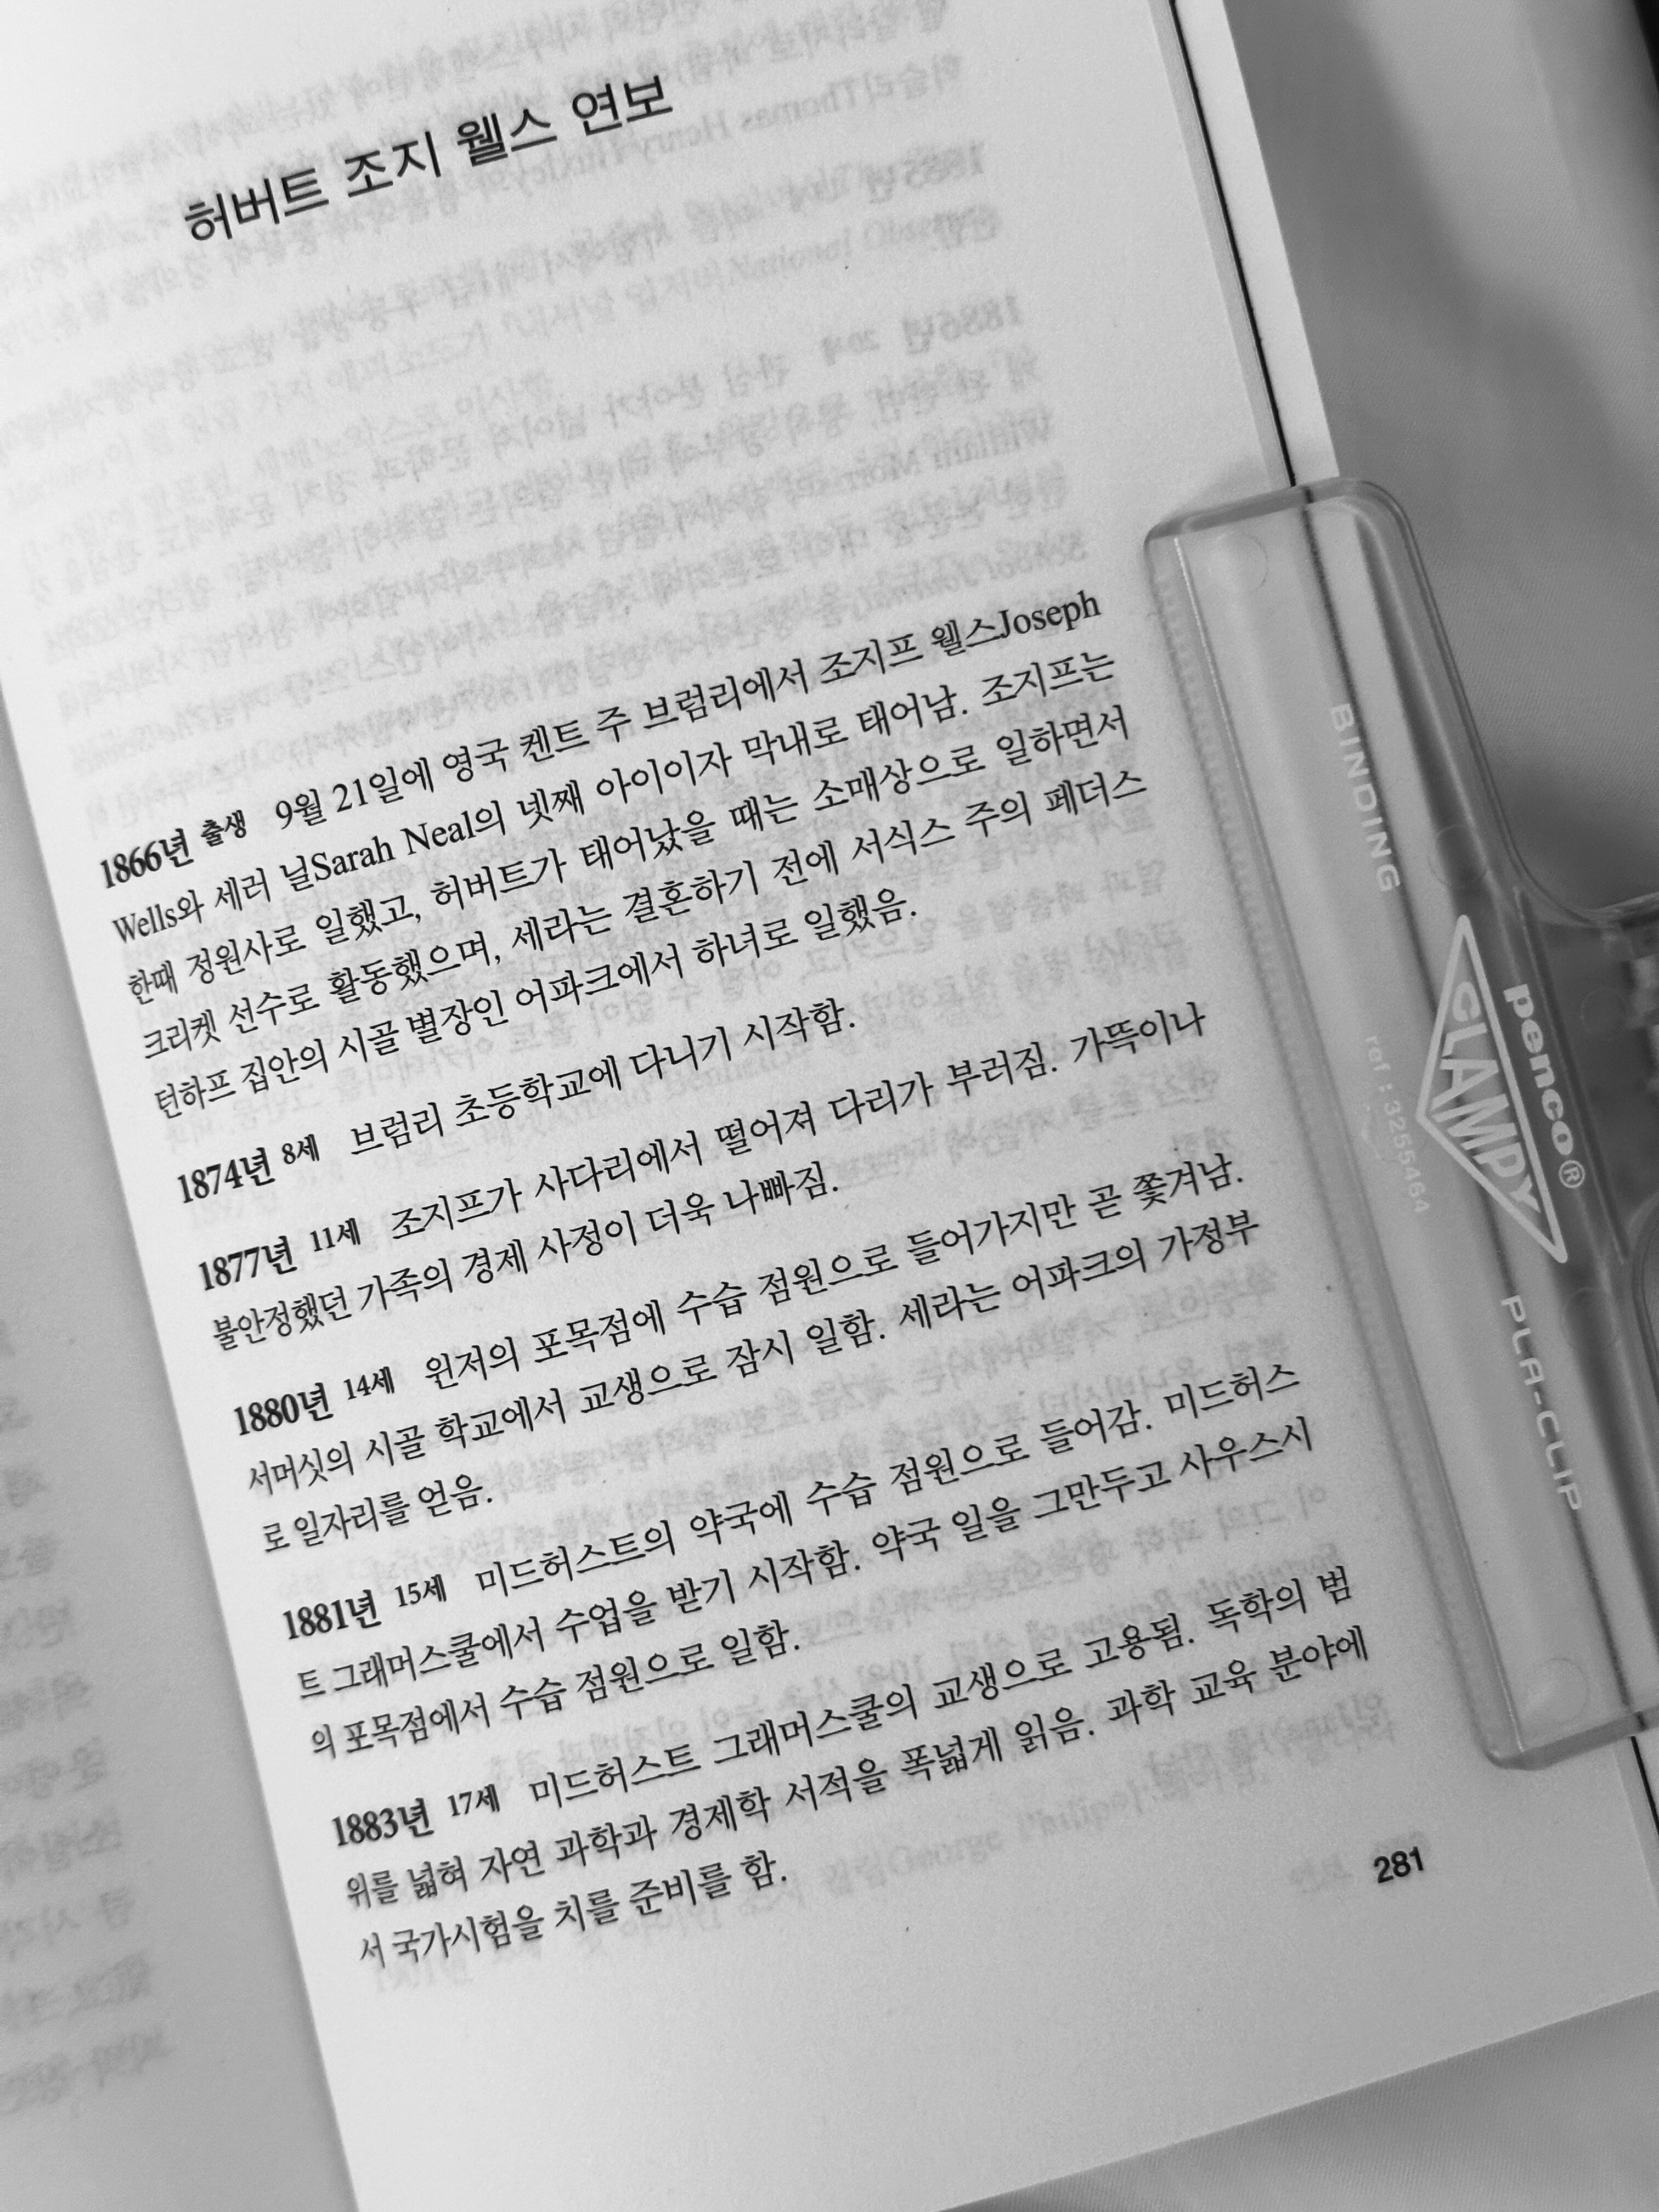 허버트 조지 웰스 연보
1866년 출생 9월 21일에 영국 켄트 주 브럼리에서 조지프 웰스Joseph
Wells와 세러 닐Sarah Neal의 넷째 아이이자 막내로 태어남. 조지프는
한때 정원사로 일했고, 허버트가 태어났을 때는 소매상으로 일하면서
크리켓 선수로 활동했으며, 세라는 결혼하기 전에 서식스 주의 페더스
턴하프 집안의 시골 별장인 어파크에서 하녀로 일했음.
1874년 8세 브럼리 초등학교에 다니기 시작함.
1877년 11세 조지프가 사다리에서 떨어져 다리가 부러짐. 가뜩이나
불안정했던 가족의 경제 사정이 더욱 나빠짐.
1880년 14세 윈저의 포목점에 수습 점원으로 들어가지만 곧 쫓겨남.
서머싯의 시골 학교에서 교생으로 잠시 일함. 세라는 어파크의 가정부
로 일자리를 얻음.
1881년 15세 미드허스트의 약국에 수습 점원으로 들어감. 미드허스
트 그래머스쿨에서 수업을 받기 시작함. 약국 일을 그만두고 사우스시
의 포목점에서 수습 점원으로 일함.
1883년 17세 미드허스트 그래머스쿨의 교생으로 고용됨. 독학의 범
위를 넓혀 자연 과학과 경제학 서적을 폭넓게 읽음. 과학 교육 분야에
서 국가시험을 치를 준비를 함.
281
BINDING
penco®
CLAMPY
ref : 3255464
PLA-CLIP